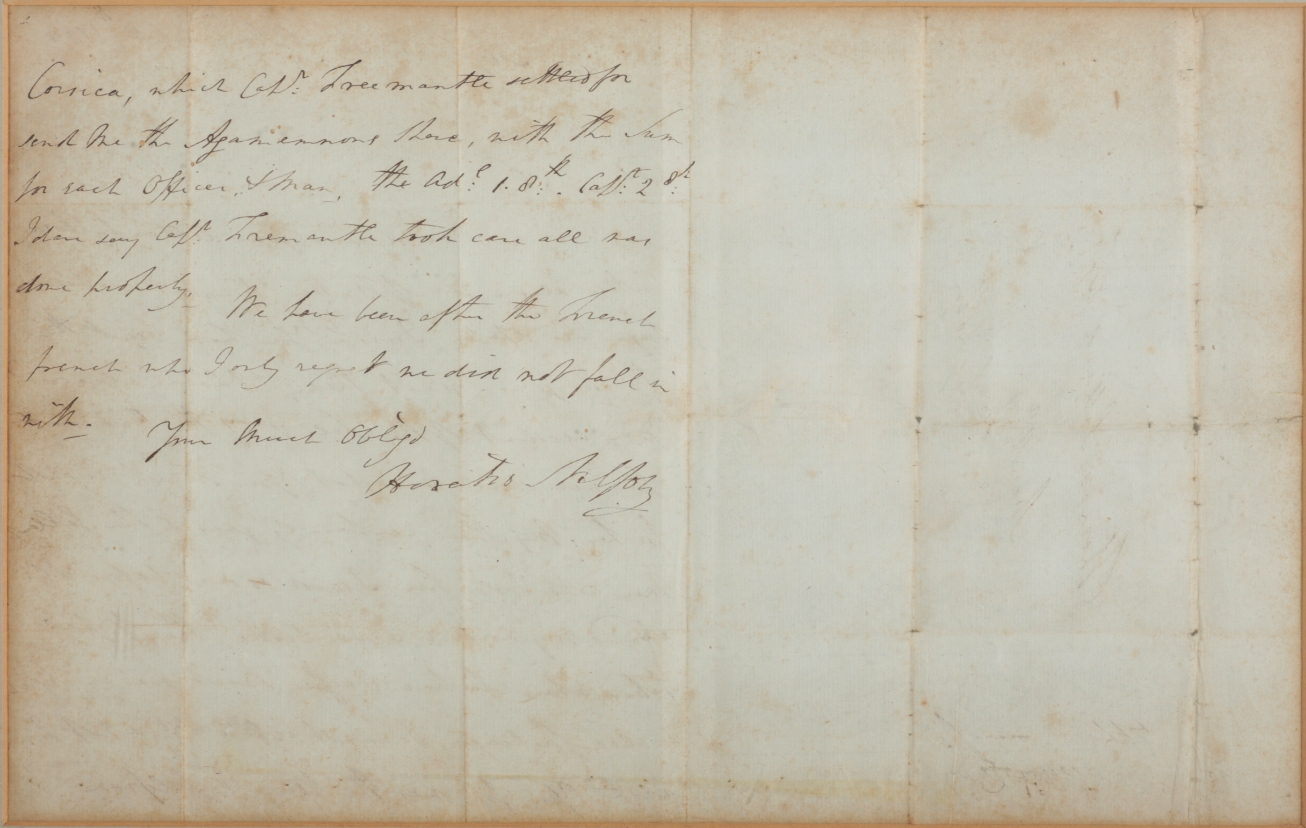 Corsica, which Capt: Freemantle settled for
send Me the Agamemnons share, with the Sum
for each Officer & Man, the Adl: 1. 8:th. Capt: 2 8:th
I dare say Capt: Fremantle took care all was
done properly.
We have been after the French
french who I only regret we did not fall in
with.
Your Much Obliged
Horatio Nelson